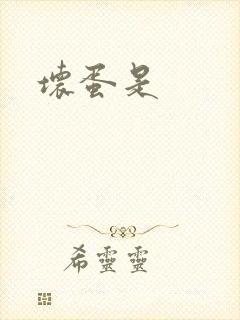 壞蛋是
希靈靈